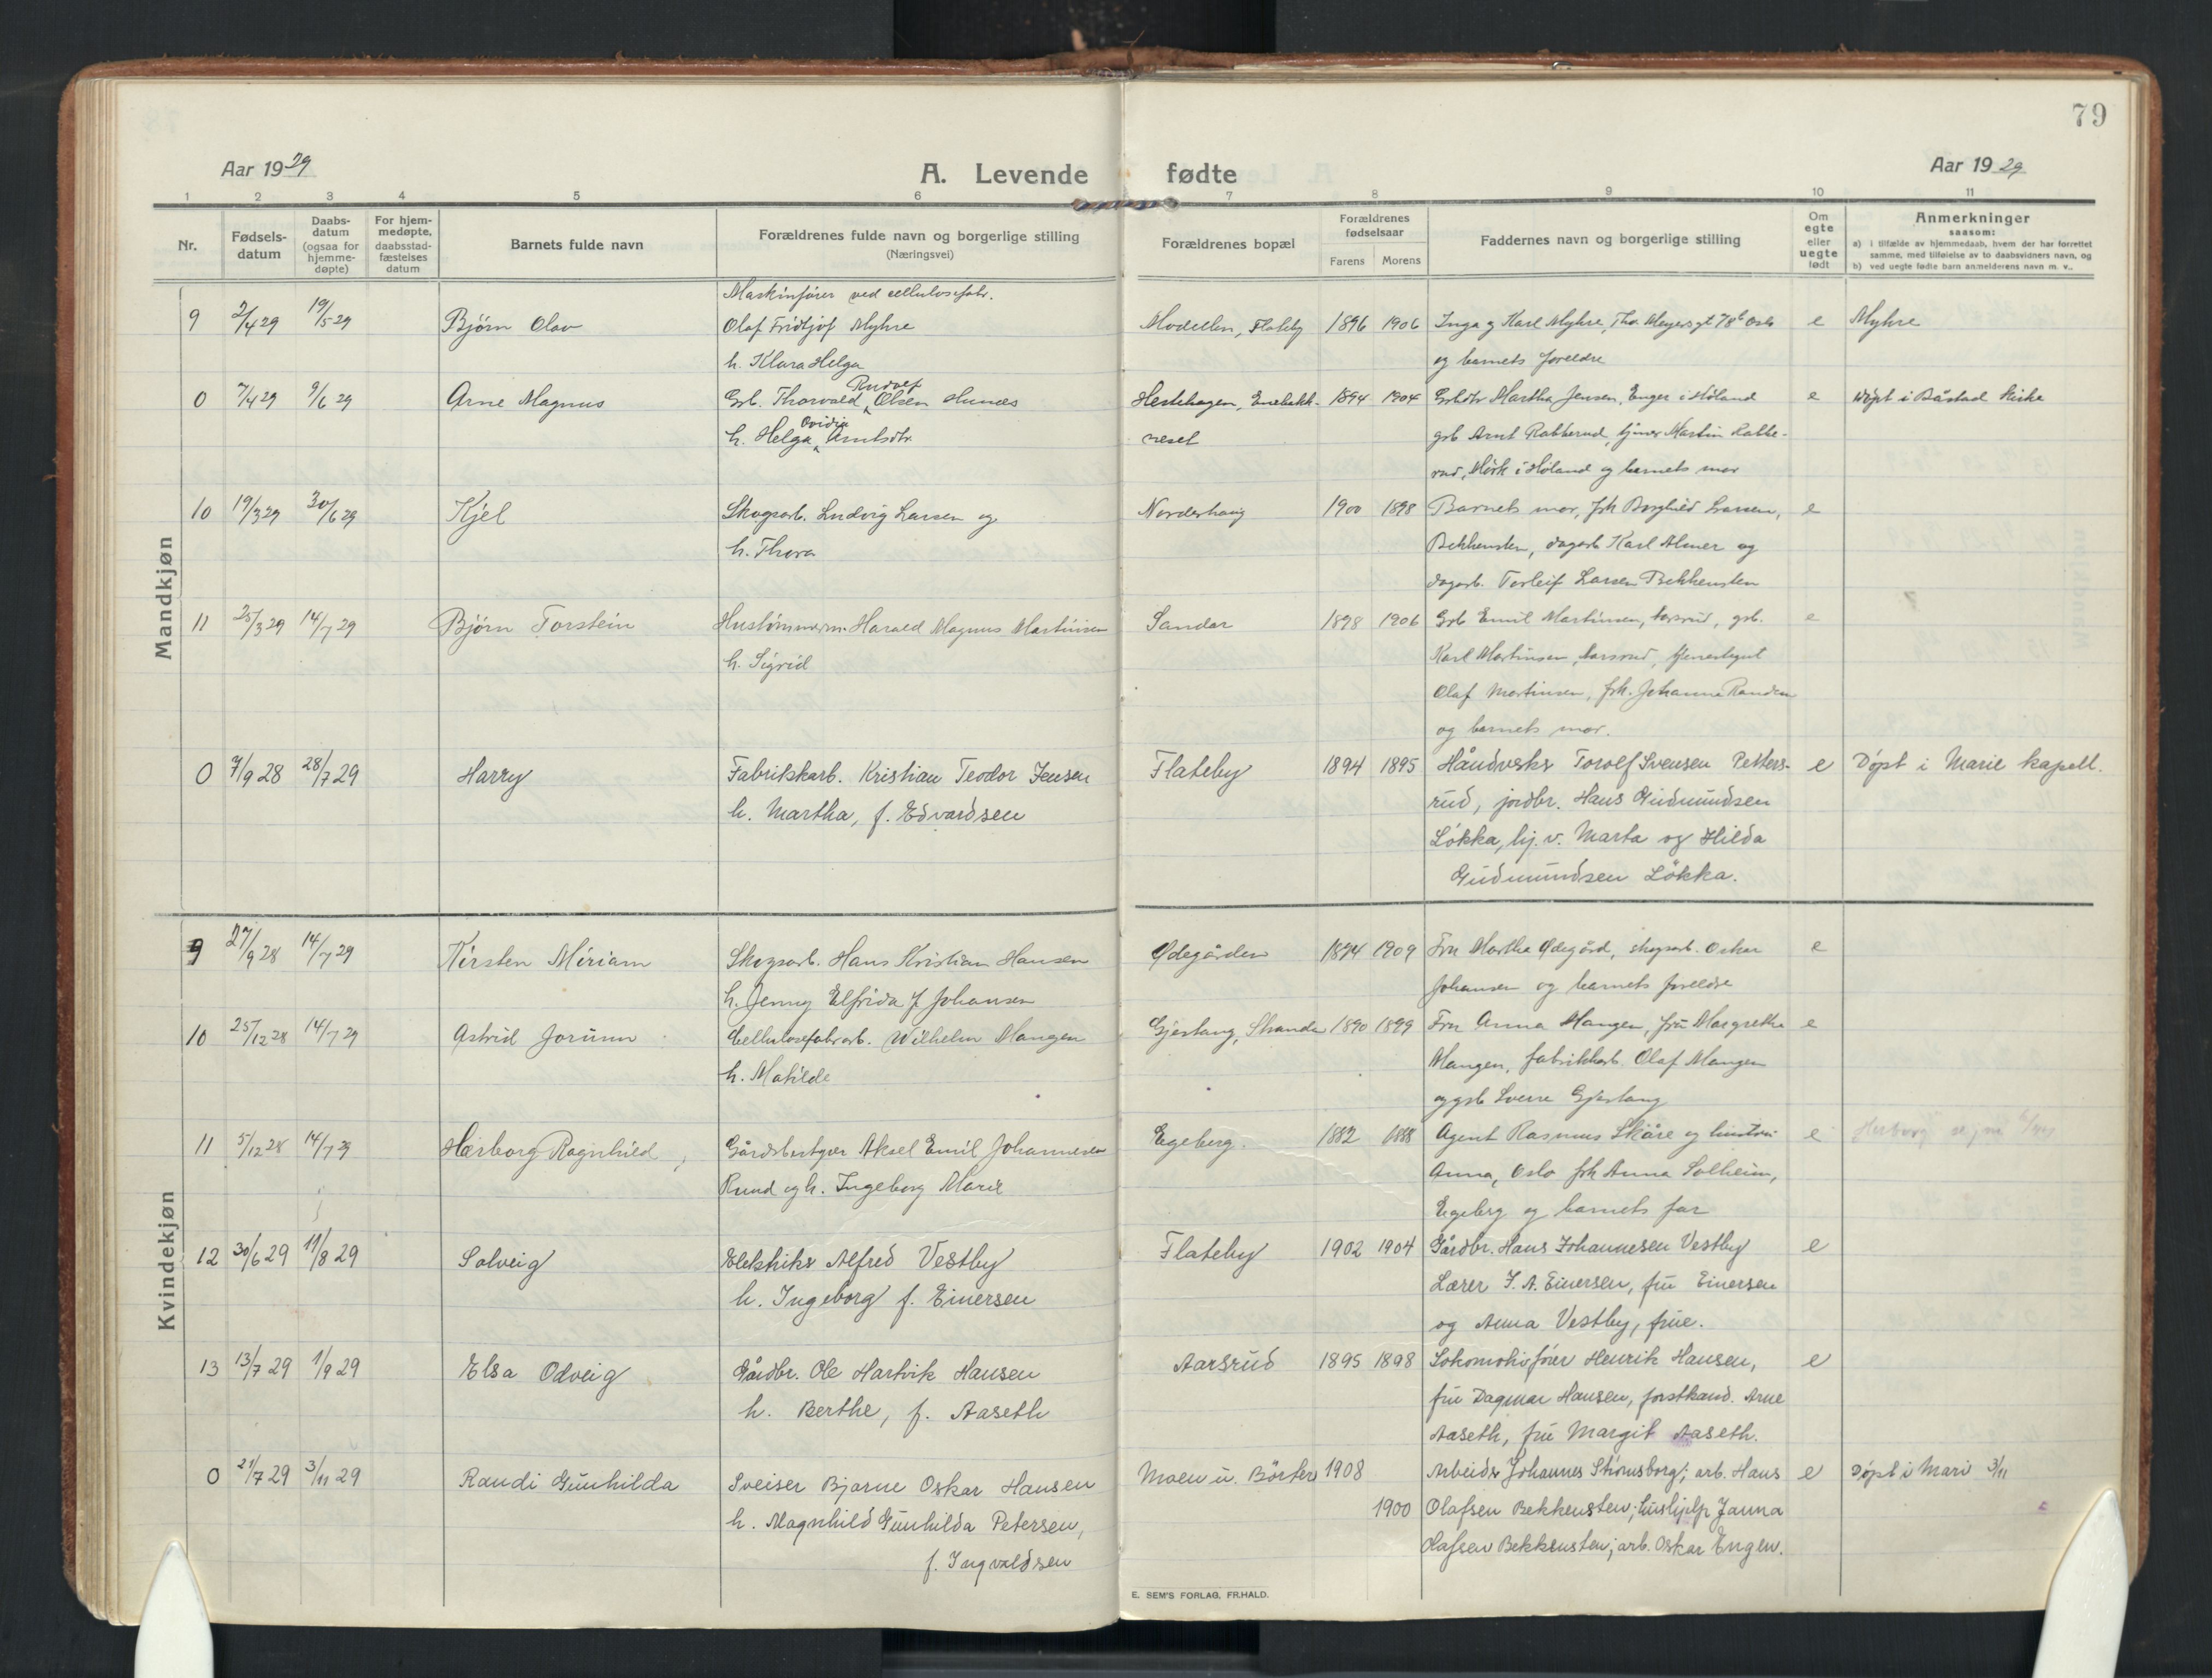 79
Aar 1929
A. Levende fødte
Aar 1929
1 2 3 4 5 6 7 8 9 10 11
Nr.
Fødsels-
datum
Daabs-
datum
(ogsaa for
hjemme-
døpte)
For hjem-
medøpte,
daabsstad-
fæstelses
datum
Barnets fulde navn
Forældrenes fulde navn og borgerlige stilling
(Næringsvei)
Forældrenes bopæl
Forældrenes
fødselsaar
Farens Morens
Faddernes navn og borgerlige stilling
Om
egte
eller
uegte
født
Anmerkninger
saasom:
a) i tilfælde av hjemmedaab, hvem der har forrettet
samme, med tilføielse av to daabsvidners navn, og
b) ved uegte fødte barn anmelderens navn m. v..
Mandkjøn
Maskinfører ved cellulosefabr.
9 2/4 29 19/5 29 Bjørn Olav Olaf Fridtjof Myhre Flateby 1896 1906 Inga og Karl Myhre, Thv. Meyersgt 78b Oslo e Myhre
h. Klara Helga og barnets foreldre
Rudolf
0 7/4 29 9/6 29 Arne Magnus Grb. Thorvald Olsen Hestehagen, Enebakk- 1894 1904 Martha Jensen, Enger i Høland e Døpt i Båstad Kirke
Ovidia
h. Helga Arntsdtr. neset grb Arnt Rabberud, Martin Rabbe-
rud, Mørk i Høland og barnets mor
10 19/3 29 30/6 29 Kjel Skogsarb. Ludvig Larsen og Norderhaug 1900 1898 Barnets mor, frk Borghild Larsen, e
h. Thora Bekkensten, dagarb Karl Almer og
dagarb. Torleif Larsen Bekkensten
11 25/3 29 14/7 29 Bjørn Torstein Hustømmerm. Harald Magnus Martinsen Sander 1898 1906 Grb Emil Martinsen, Aarsrud, grb. e
h. Sigrid Karl Martinsen, Aarsrud,
Olaf Martinsen, frk. Johanne Randem
og barnets mor.
0 7/9 28 28/7 29 Harry Fabrikkarb. Kristian Teodor Jensen Flateby 1894 1895 Håndverks Torolf Svensen Petters- e Døpt i Marie kapell.
h. Martha, f. Edvardsen rud, jordbr. Hans Gudmundsen
Løkka, hj. v. Marta og Hilda
Gudmundsen Løkka.
Kvindekjøn
9 27/9 28 14/7 29 Kirsten Miriam Skogsarb. Hans Kristian Hansen Ødegården 1894 1909 Fru Martha Ødegård, skogsarb. Oskar e
h. Jenny Elfrida f. Johansen Johansen og barnets foreldre
10 25/12 28 14/7 29 Astrid Jorunn Cellulosefabrarb. Wilhelm Mangen Gjestang, 1890 1899 Fru Anna Mangen, fru Margrethe e
h. Matilde Mangen, fabrikkarb. Olaf Mangen
og grb Sverre Gjestang
11 5/12 28 14/7 29 Herborg Ragnhild Gårdsbestyrer Aksel Emil Johannesen Egeberg. 1882 1888 Agent Rasmus Skåre og hustru e
Ruud og h. Ingeborg Marie Anna, Oslo frk Anna Solheim,
Egeberg og barnets far
12 30/6 29 11/8 29 Solveig Elektriker Alfred Vestby Flateby 1902 1904 Gårdbr. Hans Johannesen Vestby e
h. Ingeborg f. Einersen Lærer J. A. Einersen, fru Einersen
og Anna Vestby, frue.
13 13/7 29 1/9 29 Elsa Odveig Gårdbr. Ole Hartvik Hansen Aarsrud 1895 1898 Lokomotivfører Henrik Hansen, e
h. Berthe, f. Aaseth fru Dagmar Hansen, forstkand. Arne
Aaseth, fru Margit Aaseth.
0 21/7 29 3/11 29 Randi Gunhilda Sveiser Bjarne Oskar Hansen Moen u. Børter 1908 Arbeider Johannes Strømsborg; arb. Hans e Døpt i Mari 3/11
h. Magnhild Gunhilda Petersen, 1900 Olafsen Bekkensten; hushjelp Janna
f. Ingvaldsen Olafsen Bekkensten; arb. Oskar Engen.
E. SEM'S FORLAG, FR.HALD.